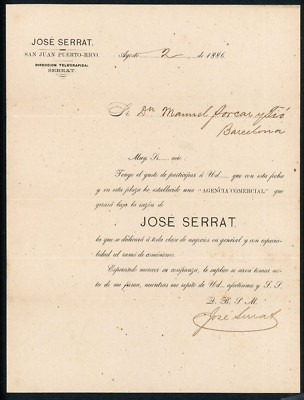 JOSÉ SERRAT.
SAN JUAN PUERTO-RICO.
DIRECCION TELEGRAFICA:
SERRAT.
Agosto 2 de 1886
Sr. Dn. Manuel Porcar y Tió
Barcelona
Muy Sr. mio:
Tengo el gusto de participar á Ud. que con esta fecha
y en esta plaza he establecido una "AGENCIA COMERCIAL," que
girará bajo la razón de
JOSÉ SERRAT.
la que se dedicará á toda clase de negocios en general y con especia-
lidad al ramo de comisiones.
Esperando merecer su confianza, le suplico se sirva tomar no-
ta de mi firma, mientras me repito de Ud. afectísimo y S. S.
Q. B. S. M.
José Serrat